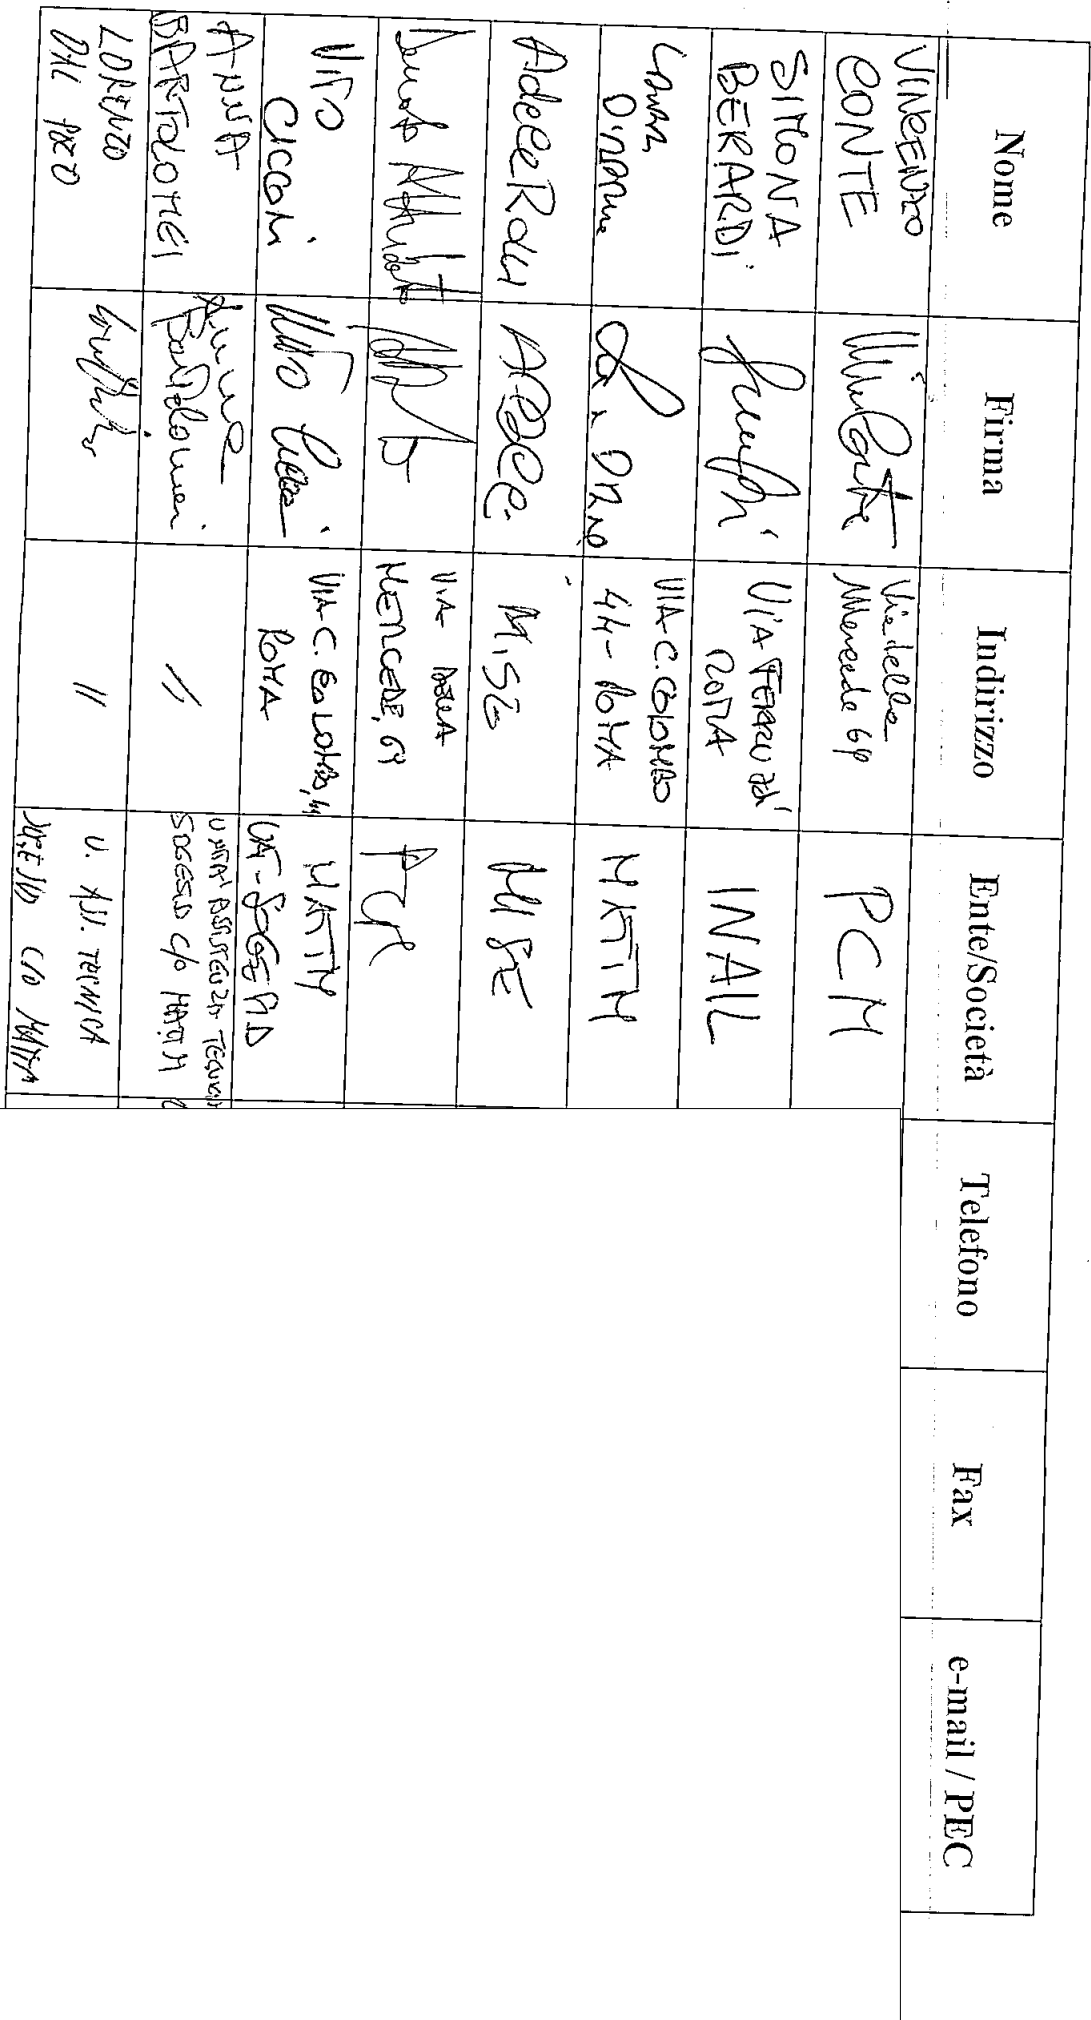 Nome Firma Indirizzo Ente/Società Telefono Fax e-mail / PEC
VINCENZO
CONTE
Via della
Mercede 9
PCM
SIMONA
BERARDI
VIA FERRUZZI
ROMA
INAIL
VIA C. COLOMBO
44 - ROMA
MATTM
Adele
MISE
MISE
VIA DELLA
MERCEDE, 9
VITO
CICCONI
Vito
VIA C. COLOMBO, 44
ROMA
MATTM
UAT - SOGESID
ANNA
BARTOLOMEI
Anna
Bartolomei
//
UNITA' ASSISTENZA TECNICA
SOGESID C/O MATTM
LORENZO
//
U. ASS. TECNICA
SOGESID C/O MATTM